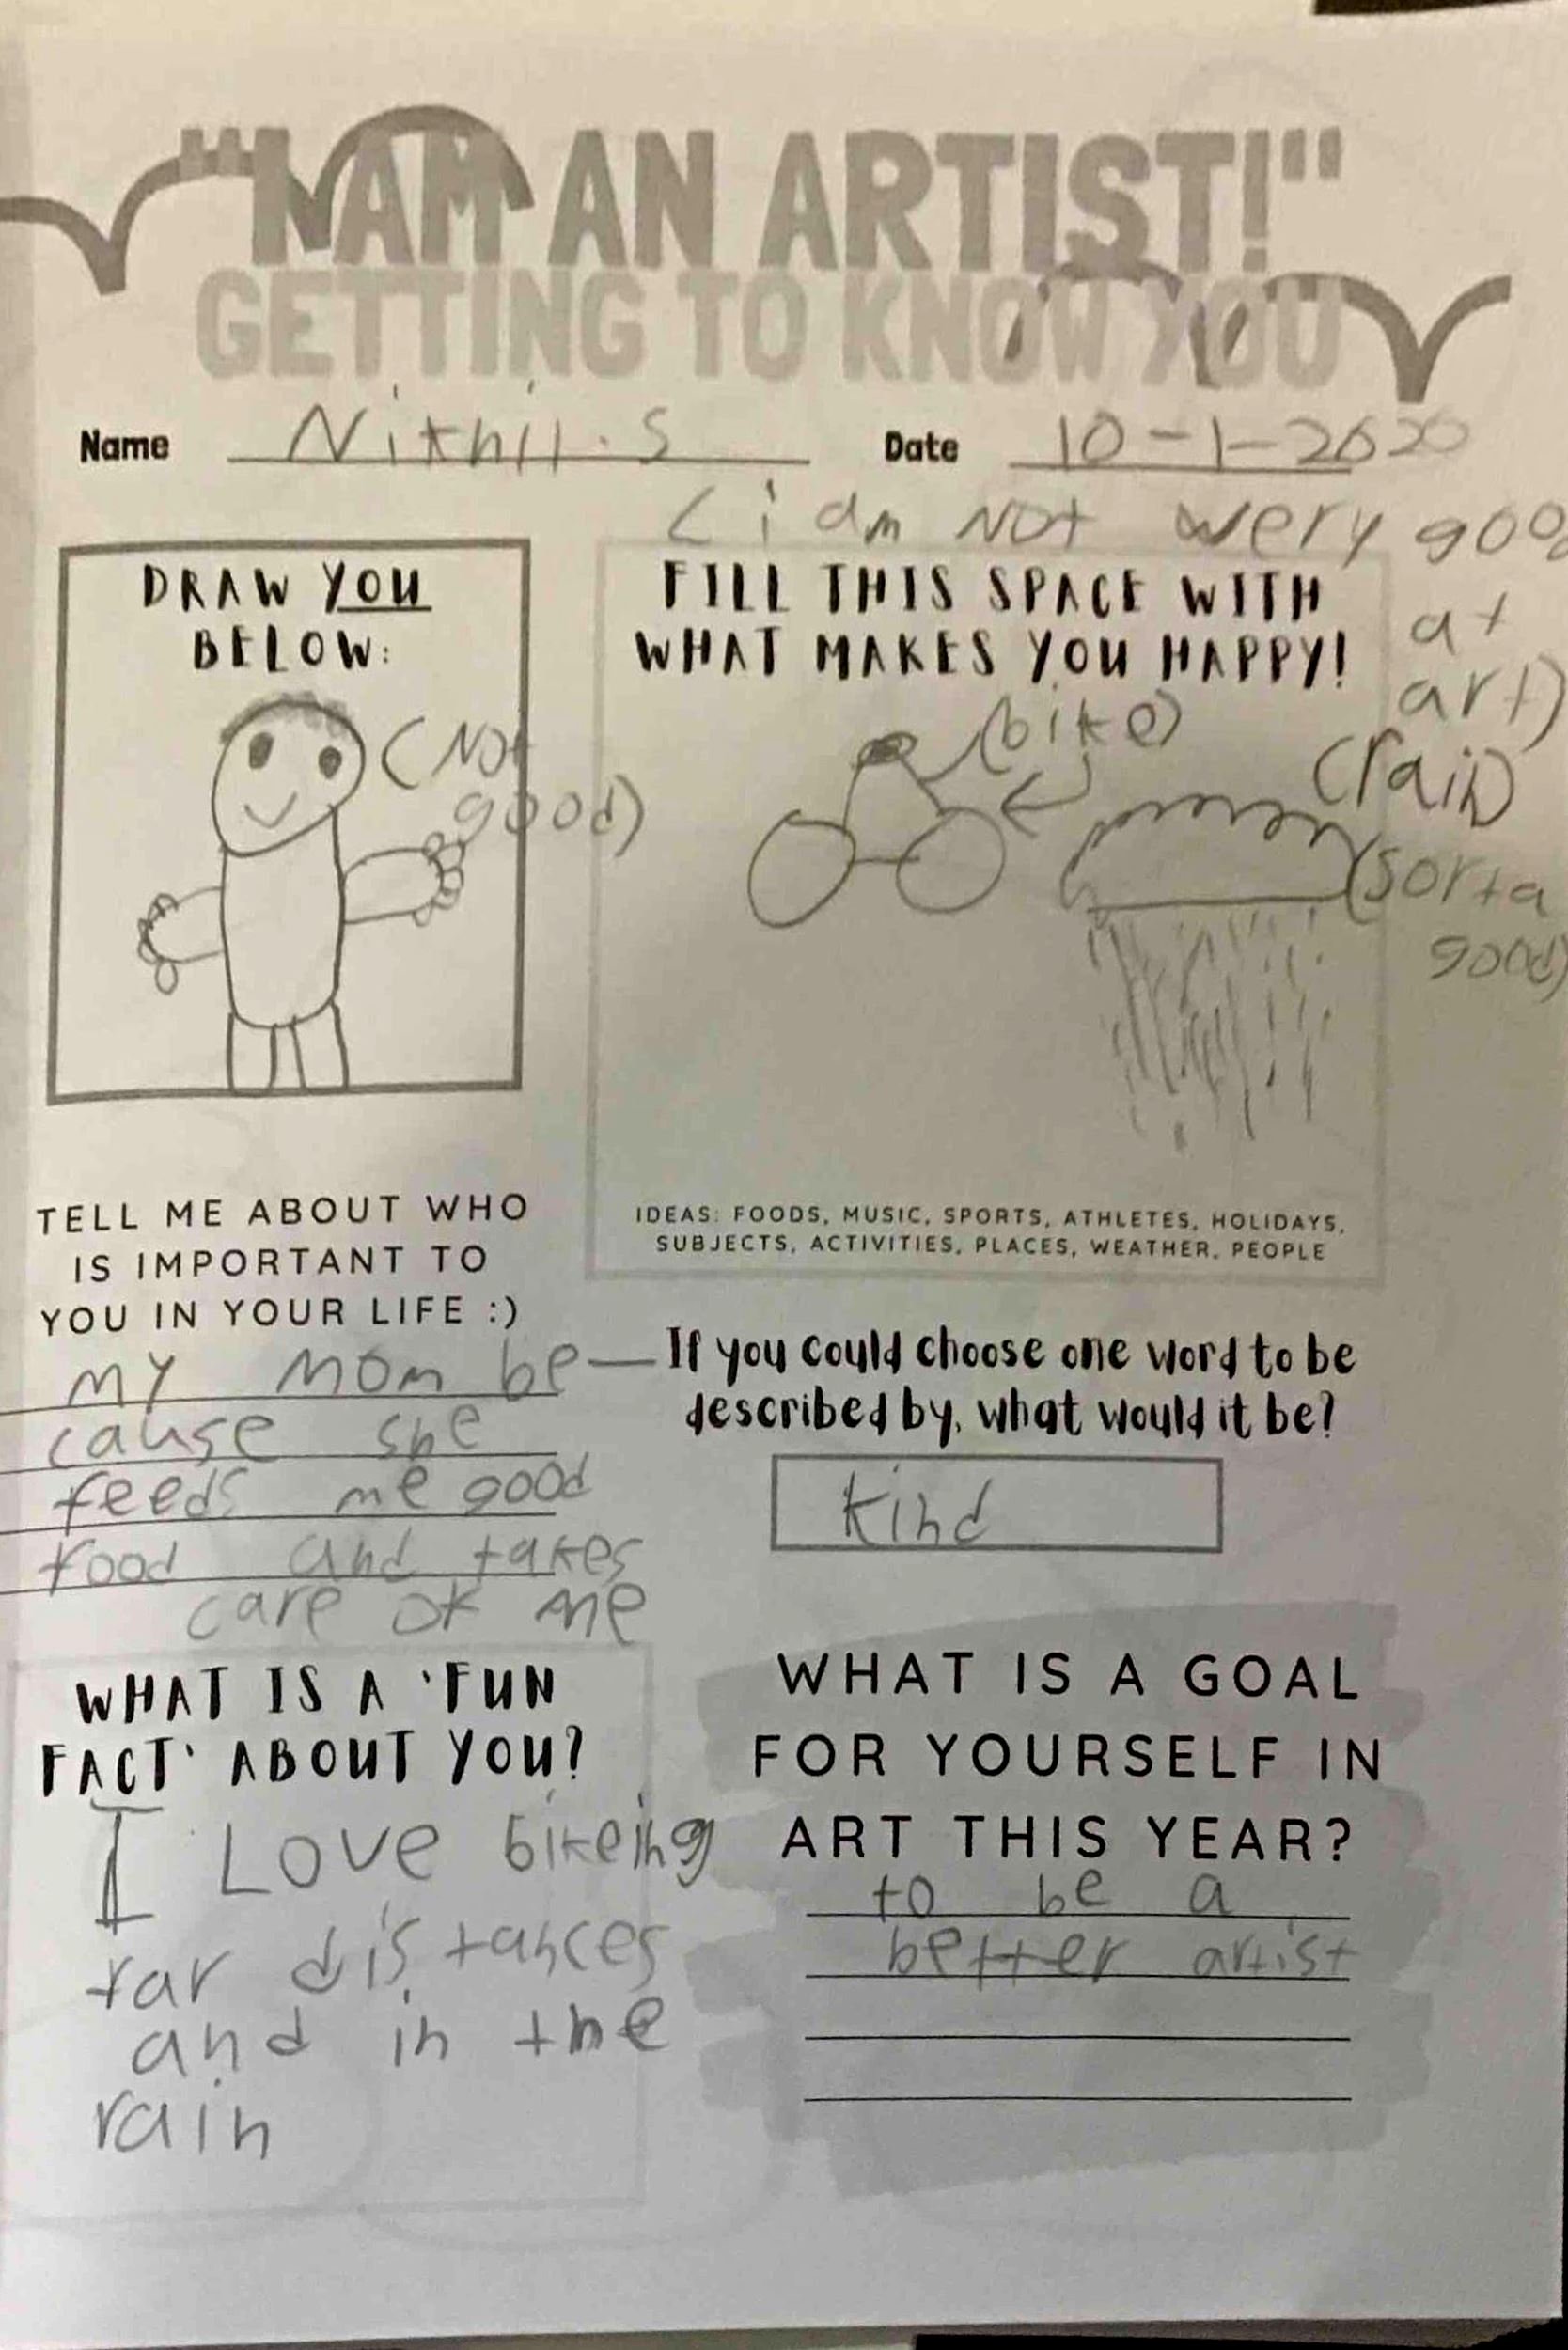 "I AM AN ARTIST!"
GETTING TO KNOW YOU
Name Nikhil.S Date 10-1-2020
(i am not wery good
at
art)
DRAW YOU
BELOW:
(Not
good)
FILL THIS SPACE WITH
WHAT MAKES YOU HAPPY!
(bike)
(rain)
(sorta
good)
IDEAS: FOODS, MUSIC, SPORTS, ATHLETES, HOLIDAYS,
SUBJECTS, ACTIVITIES, PLACES, WEATHER, PEOPLE
TELL ME ABOUT WHO
IS IMPORTANT TO
YOU IN YOUR LIFE :)
my mom be—
cause she
feeds me good
food and takes
care of me
If you could choose one word to be
described by, what would it be?
kind
WHAT IS A 'FUN
FACT' ABOUT YOU?
I Love bikeing
far distances
and in the
rain
WHAT IS A GOAL
FOR YOURSELF IN
ART THIS YEAR?
to be a
better artist